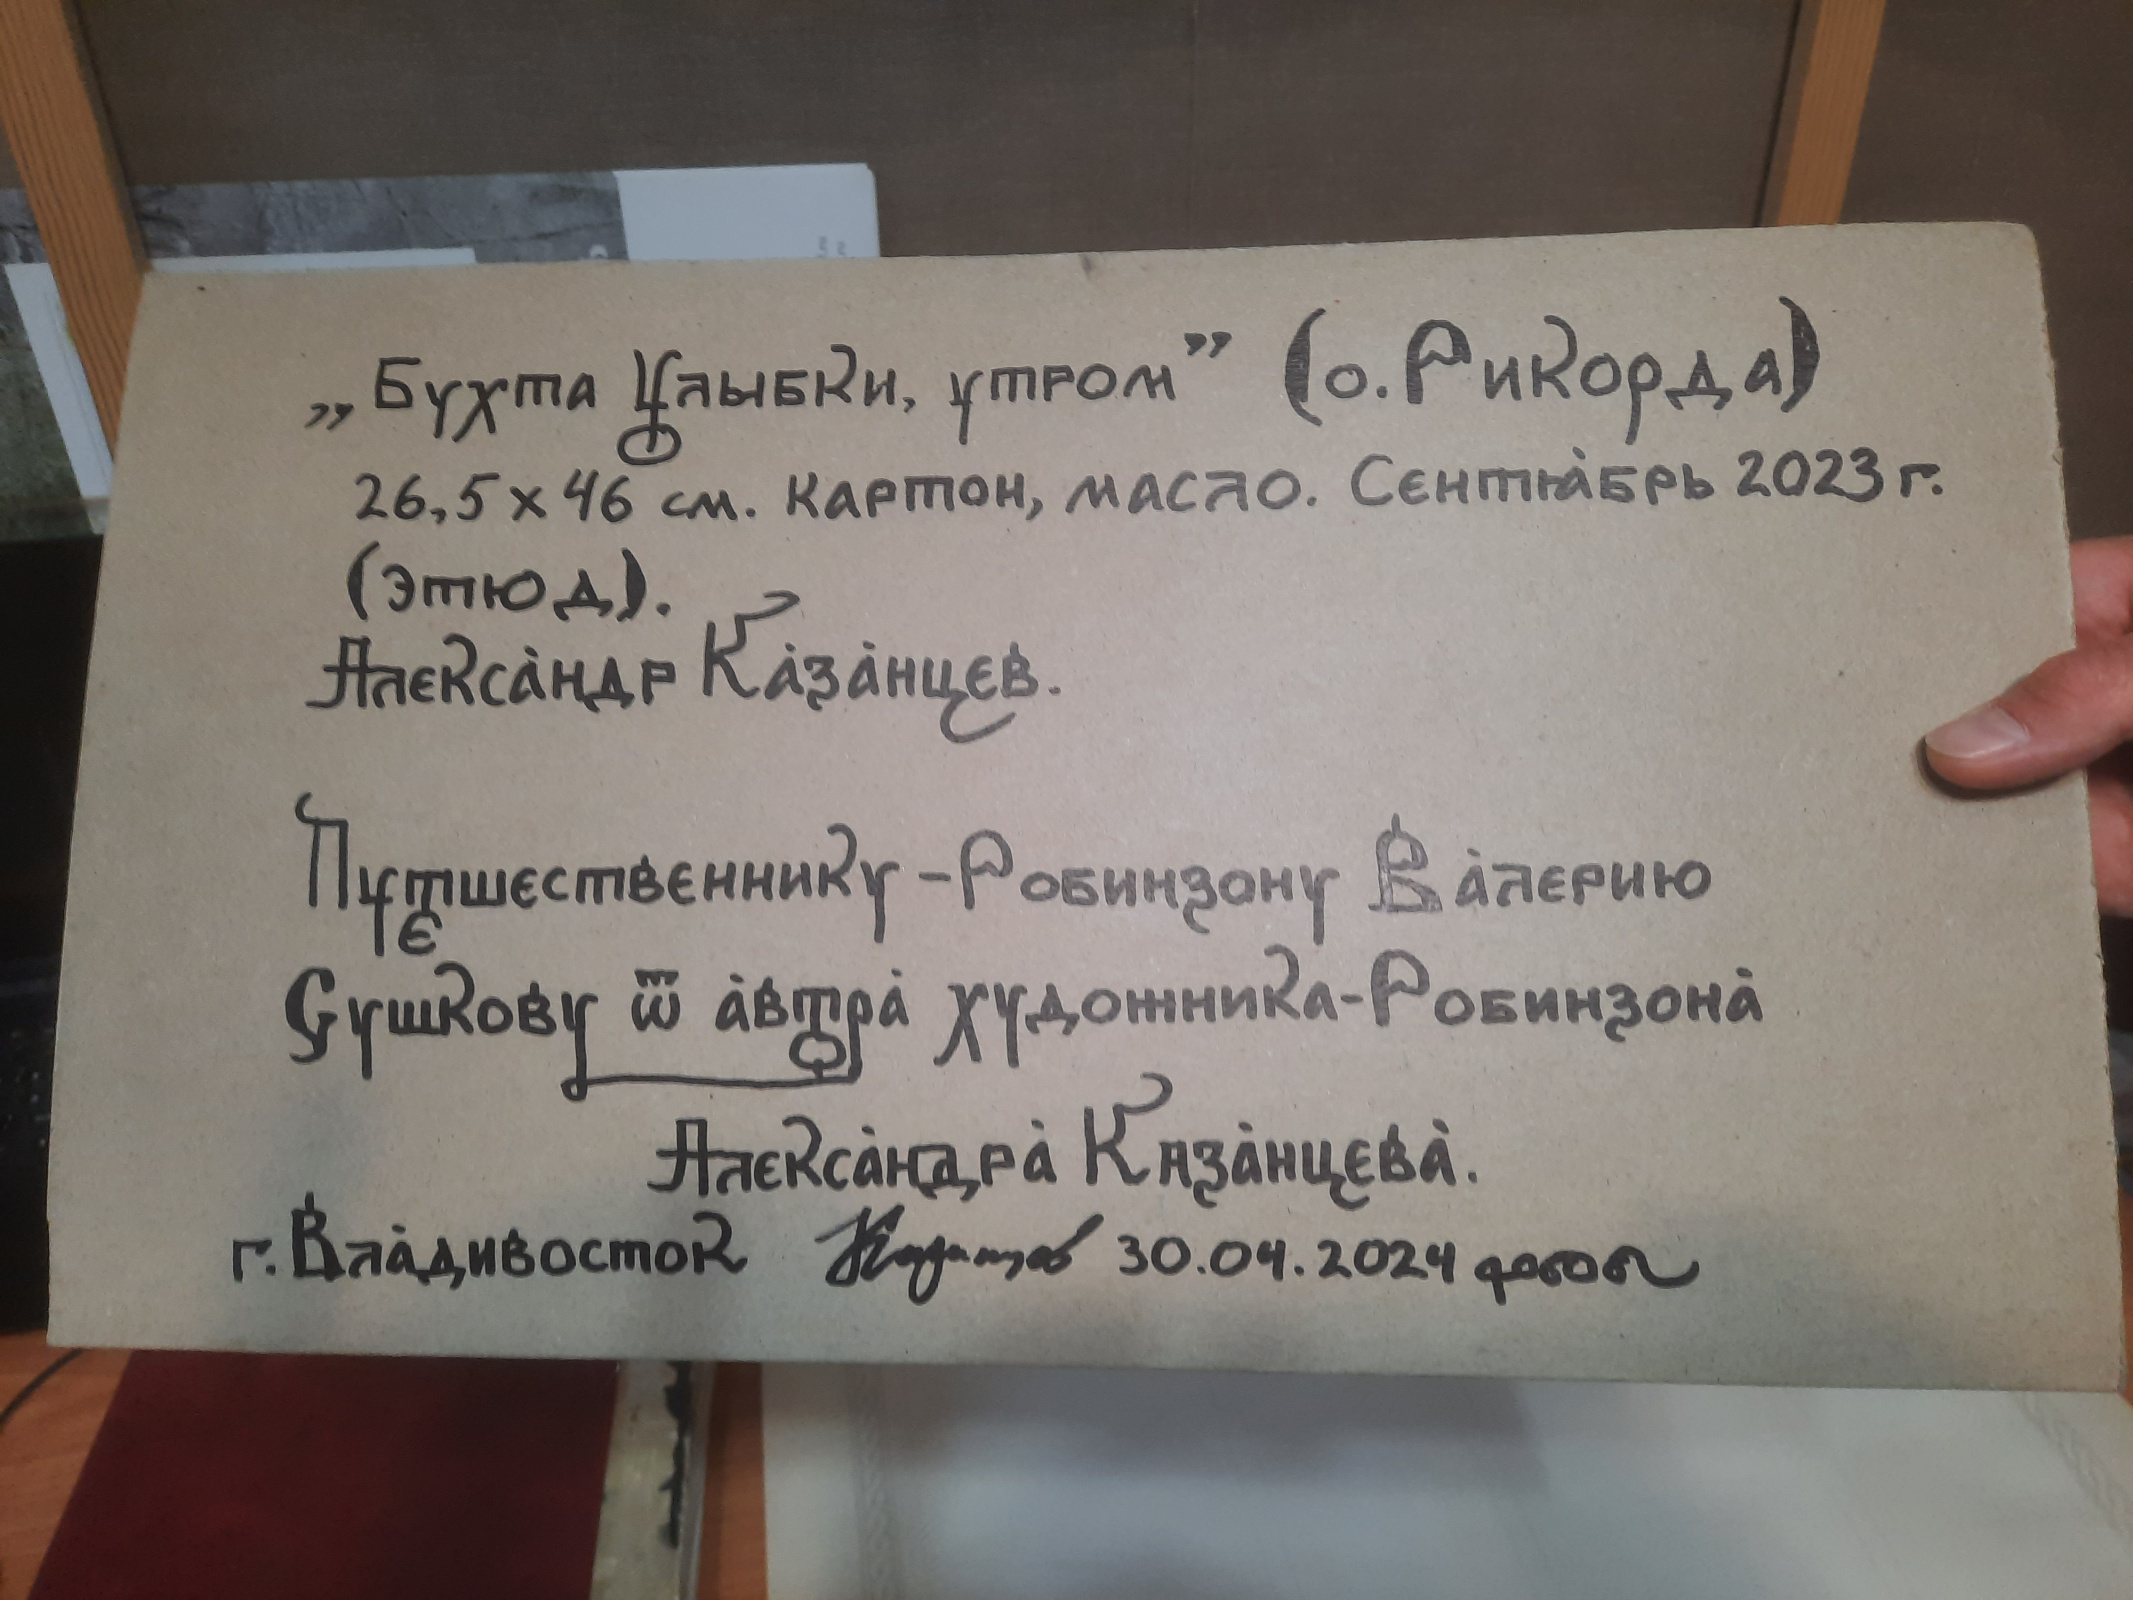 „Бухта Улыбки, утром” (о. Рикорда)
26,5 х 46 см. картон, масло. Сентябрь 2023 г.
(этюд).
Александр Казанцев.
Путешественнику-Робинзону Валерию
Сушкову ѿ автора художника-Робинзона
Александра Казанцева.
г. Владивосток Казанцев 30.04.2024